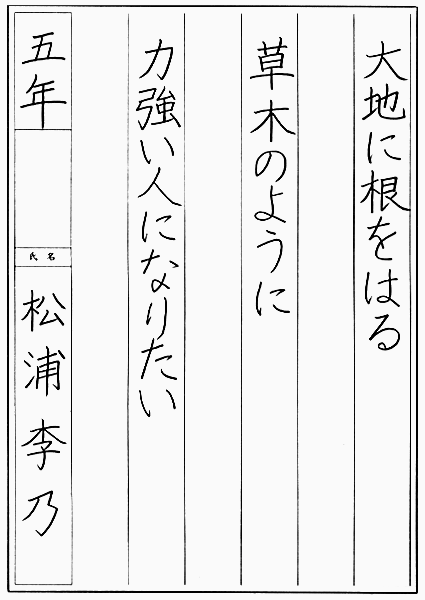 大地に根をはる
草木のように
力強い人になりたい
五年
氏名
松浦李乃